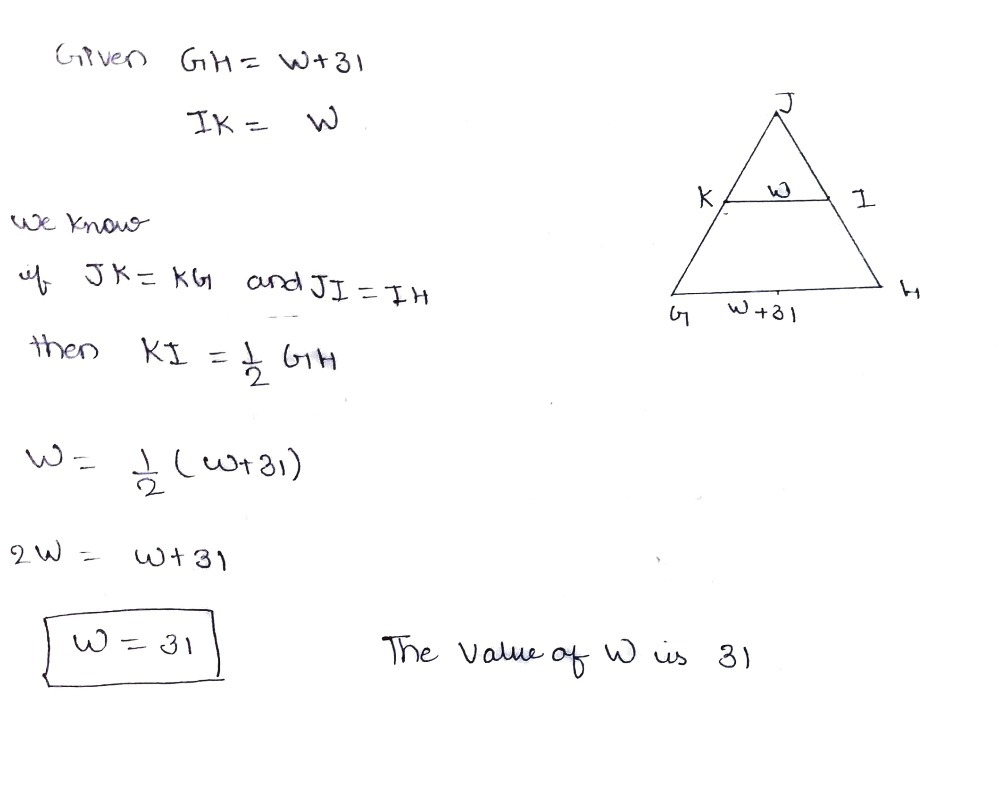 Given GH = W+31
IK = W
J
K W I
G W+31 H
we know
if JK = KG and JI = IH
then KI = 1/2 GH
W = 1/2 (W+31)
2W = W+31
W = 31
The value of W is 31